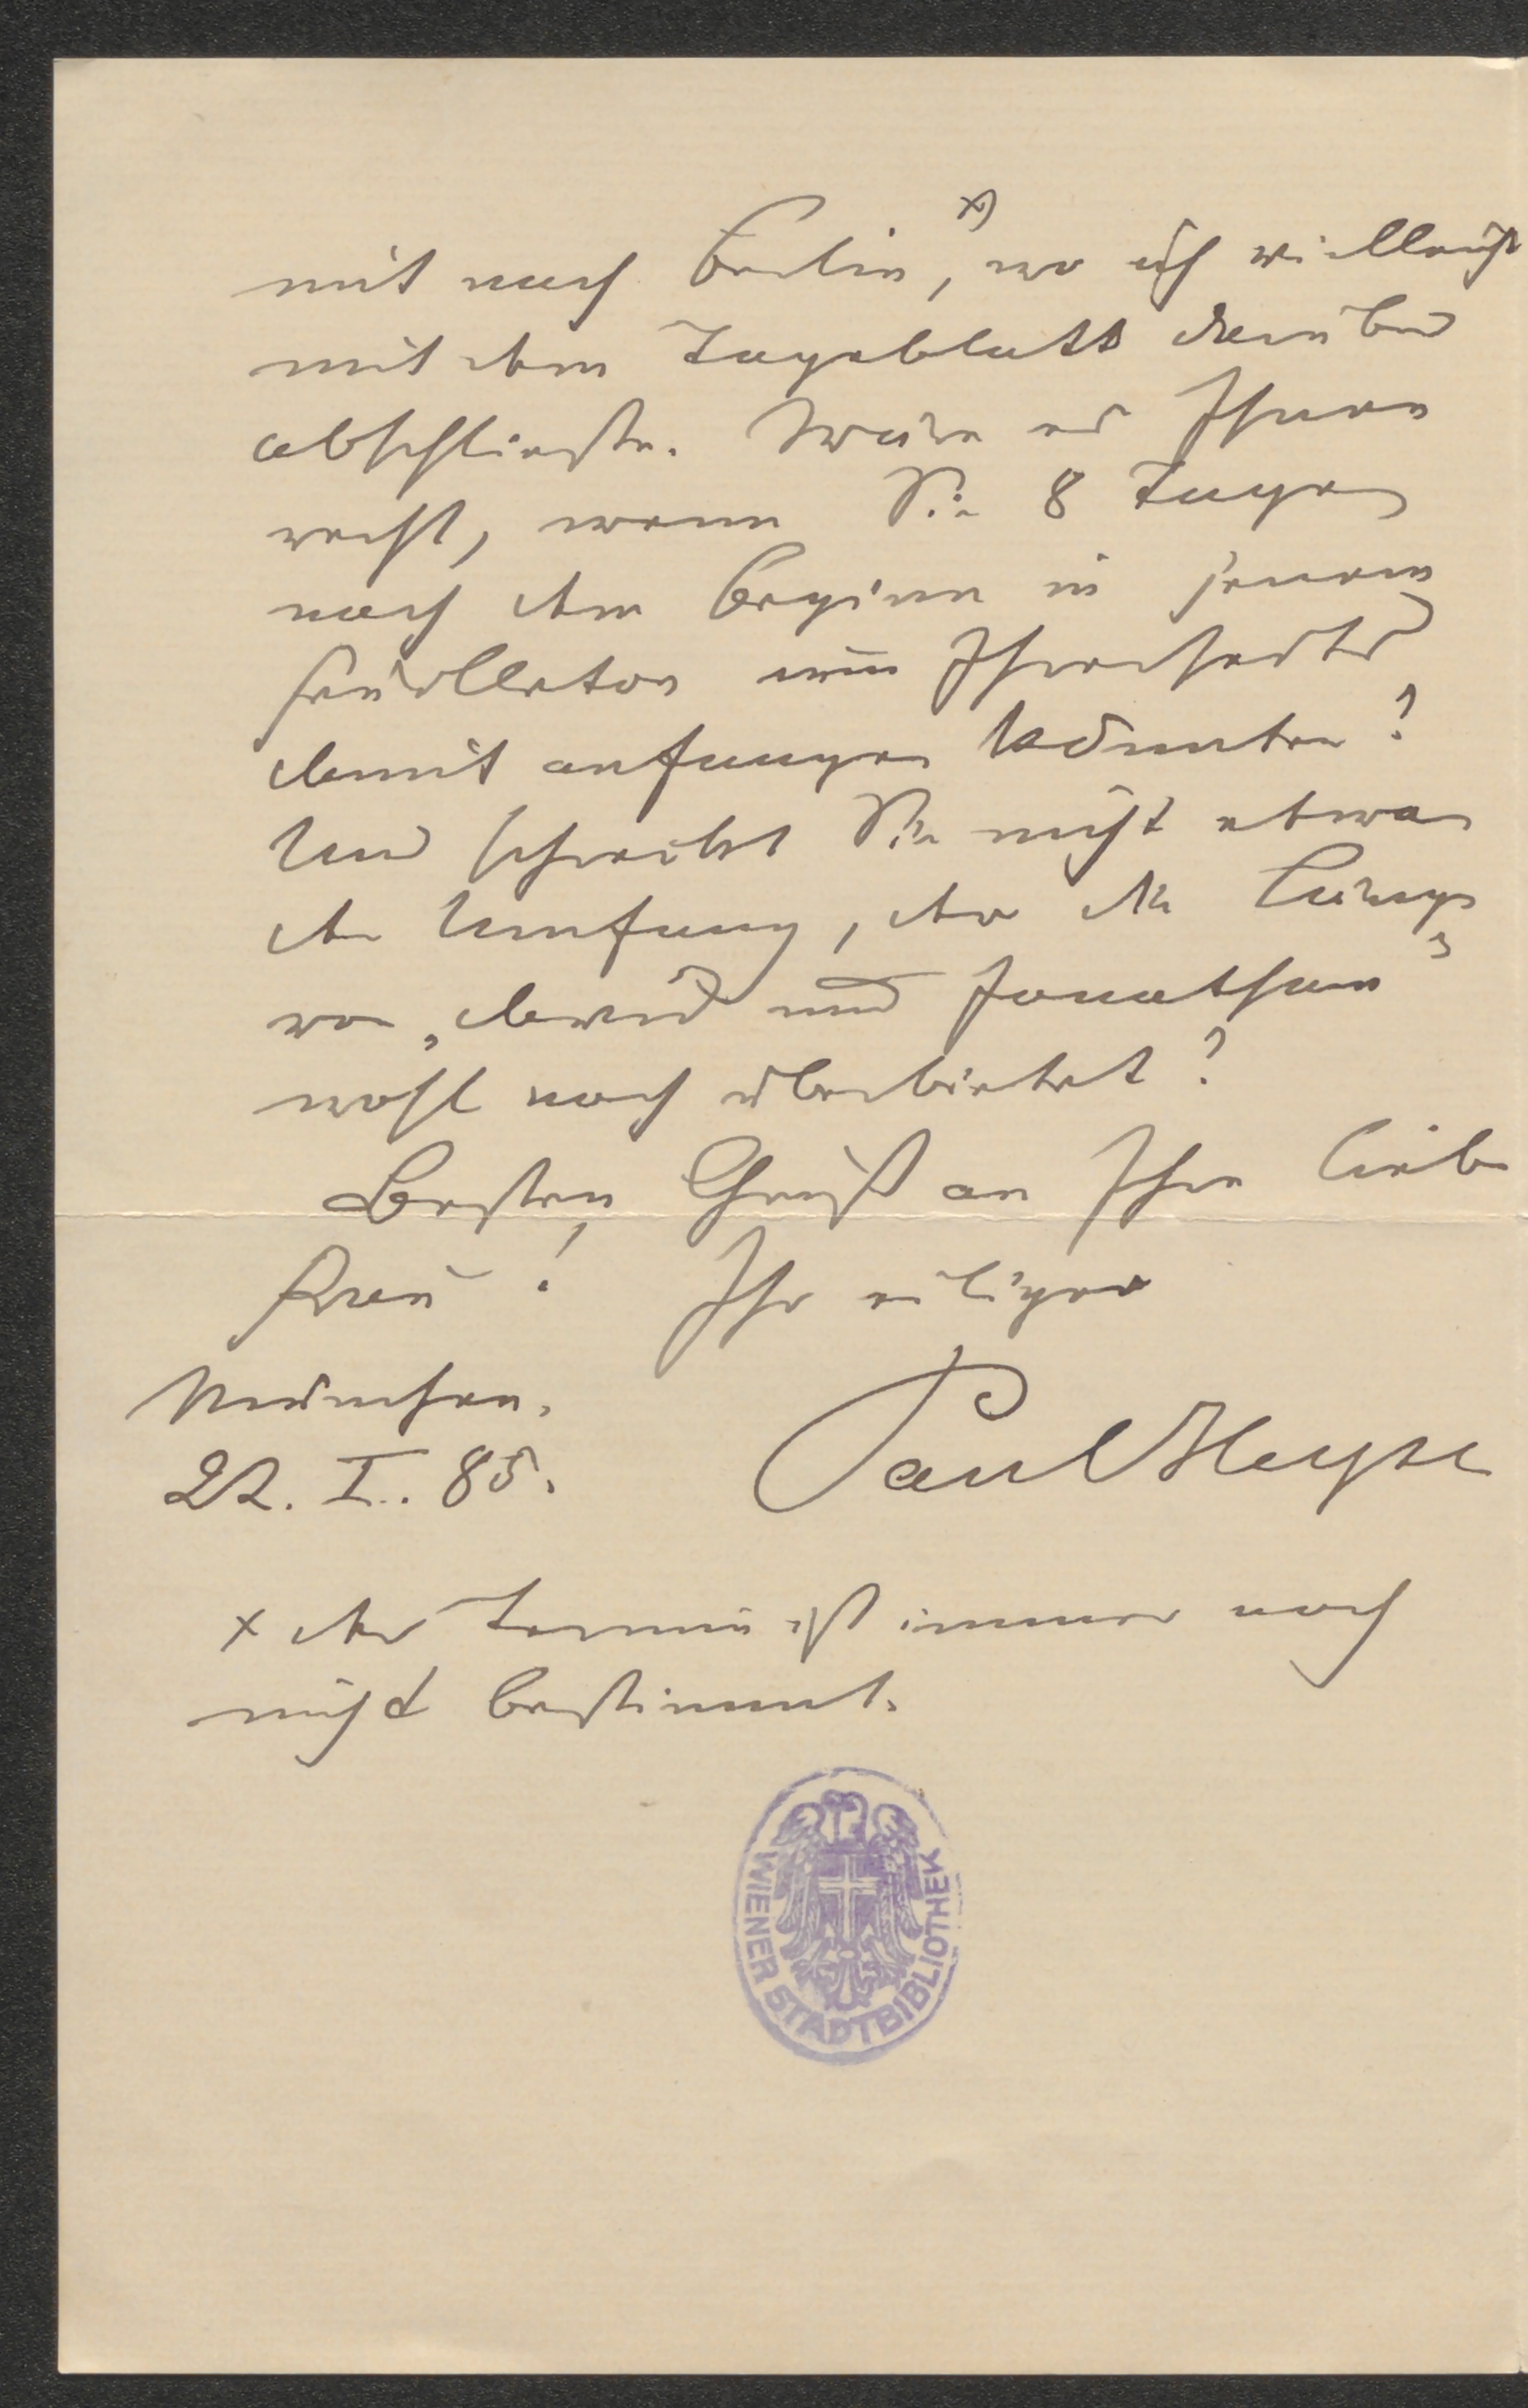 x)
mit nach Berlin, wo ich vielleicht
mit dem Tageblatt darüber
abschließe. Wäre es Ihnen
recht, wenn Sie 8 Tage
nach dem Beginn in jenem
Feuilleton mit
damit anfangen könnten?
Und schreckt Sie nicht etwa
der Umfang, der die Länge
von „David und Jonathan"
wohl noch überbietet?
Besten Gruß an Ihre liebe
Frau! Ihr eiliger
München.
22. I. 85.
Paul Heyse
x der Termin ist immer noch
nicht bestimmt.
WIENER STADTBIBLIOTHEK